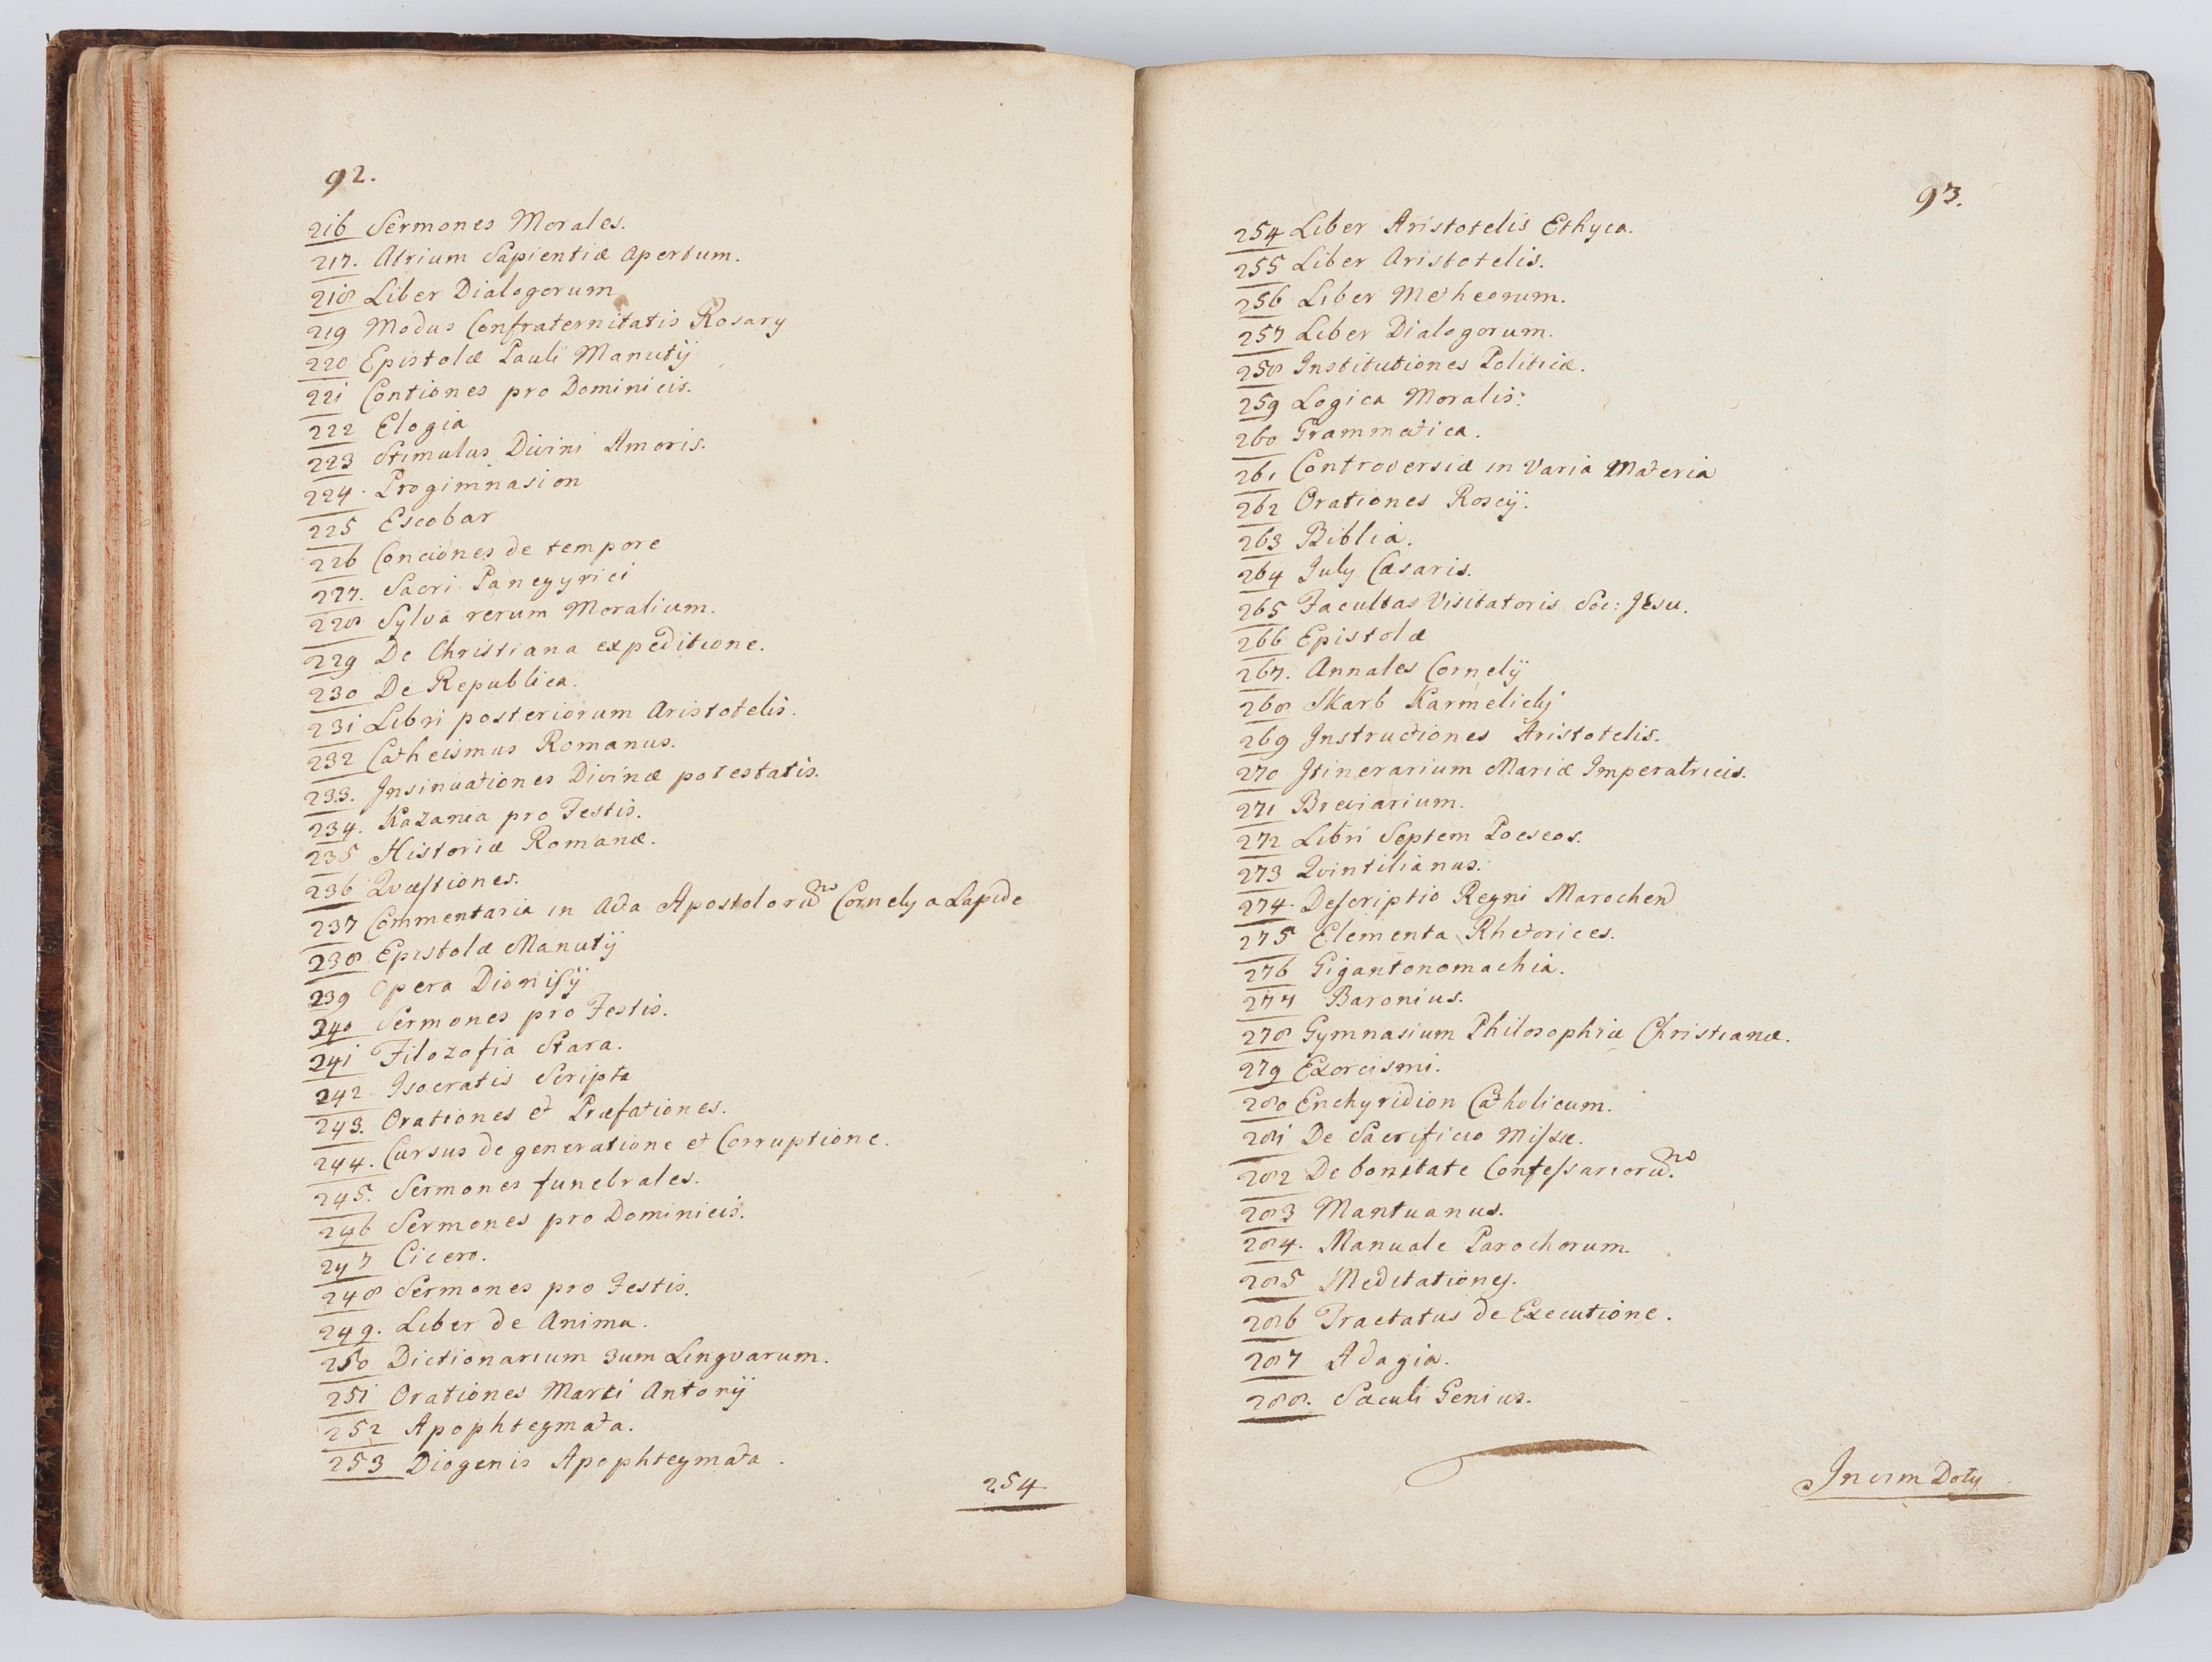 92.
216 Sermones Morales.
217. Atrium Sapientiæ Apertum.
218 Liber Dialogorum
219 Modus Confraternitatis Rosary
220 Epistolæ Pauli Manutij
221 Contiones pro Dominicis.
222 Elogia
223 Stimulus Divini Amoris.
224. Progimnasion
225 Escobar
226 Conciones de tempore
227. Sacri Panegyrici
228 Sylva rerum Moralium.
229 De Christiana expeditione.
230 De Republica.
231 Libri posteriorum Aristotelis.
232 Catheismus Romanus.
233. Insinuationes Divinæ potestatis.
234. Kazania pro Festis.
235 Historiæ Romanæ.
236 Qvæstiones.
237 Commentaria in Acta Apostolorum Cornely a Lapide
238 Epistolæ Manutij
239 Opera Dionisij
240 Sermones pro Festis.
241 Filozofia Stara.
242 Isocratis Scripta
243. Orationes et Præfationes.
244. Cursus de generatione et Corruptione.
245. Sermones funebrales.
246 Sermones pro Dominicis.
247 Cicero.
248 Sermones pro Festis.
249. Liber de Anima.
250 Dictionarium 3um Lingvarum.
251 Orationes Marci Antonij
252 Apophtegmata.
253 Diogenis Apophtegmata.
254
93.
254 Liber Aristotelis Ethyca.
255 Liber Aristotelis.
256 Liber Metheorum.
257 Liber Dialogorum.
258 Institutiones Politicæ.
259 Logica Moralis.
260 Grammatica.
261 Controversiæ in Varia Materia
262 Orationes Roscij.
263 Biblia.
264 July Cæsaris.
265 Facultas Visitatoris Soc: Jesu.
266 Epistolæ
267. Annales Cornelij
268 Skarb Karmelicki
269 Instructiones Aristotelis.
270 Itinerarium Mariæ Imperatricis.
271 Breviarium.
272 Libri Septem Poeseos.
273 Qvintilianus.
274. Descriptio Regni Marochen
275 Elementa Rhetorices.
276 Gigantonomachia.
277 Baronius.
278 Gymnasium Philosophiæ Christianæ.
279 Exorcismi.
280 Enchyridion Catholicum.
281 De Sacrificio Missæ.
282 De bonitate Confessariorum.
283 Mantuanus.
284. Manuale Parochorum.
285 Meditationes.
286 Tractatus de Executione.
287 Adagia.
288. Sæculi Genius.